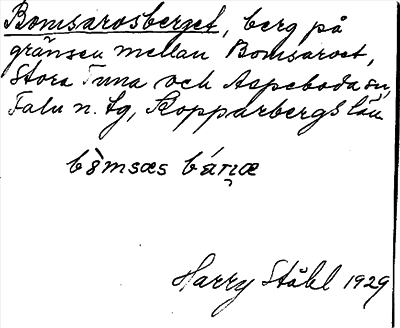 Bomsarosberget, berg på
gränsen mellan Bomsarvet,
Stora Tuna och Aspeboda sn,
Falu n. tg, Kopparbergs län
bòmsæs báṇæ
Harry Ståhl 1929